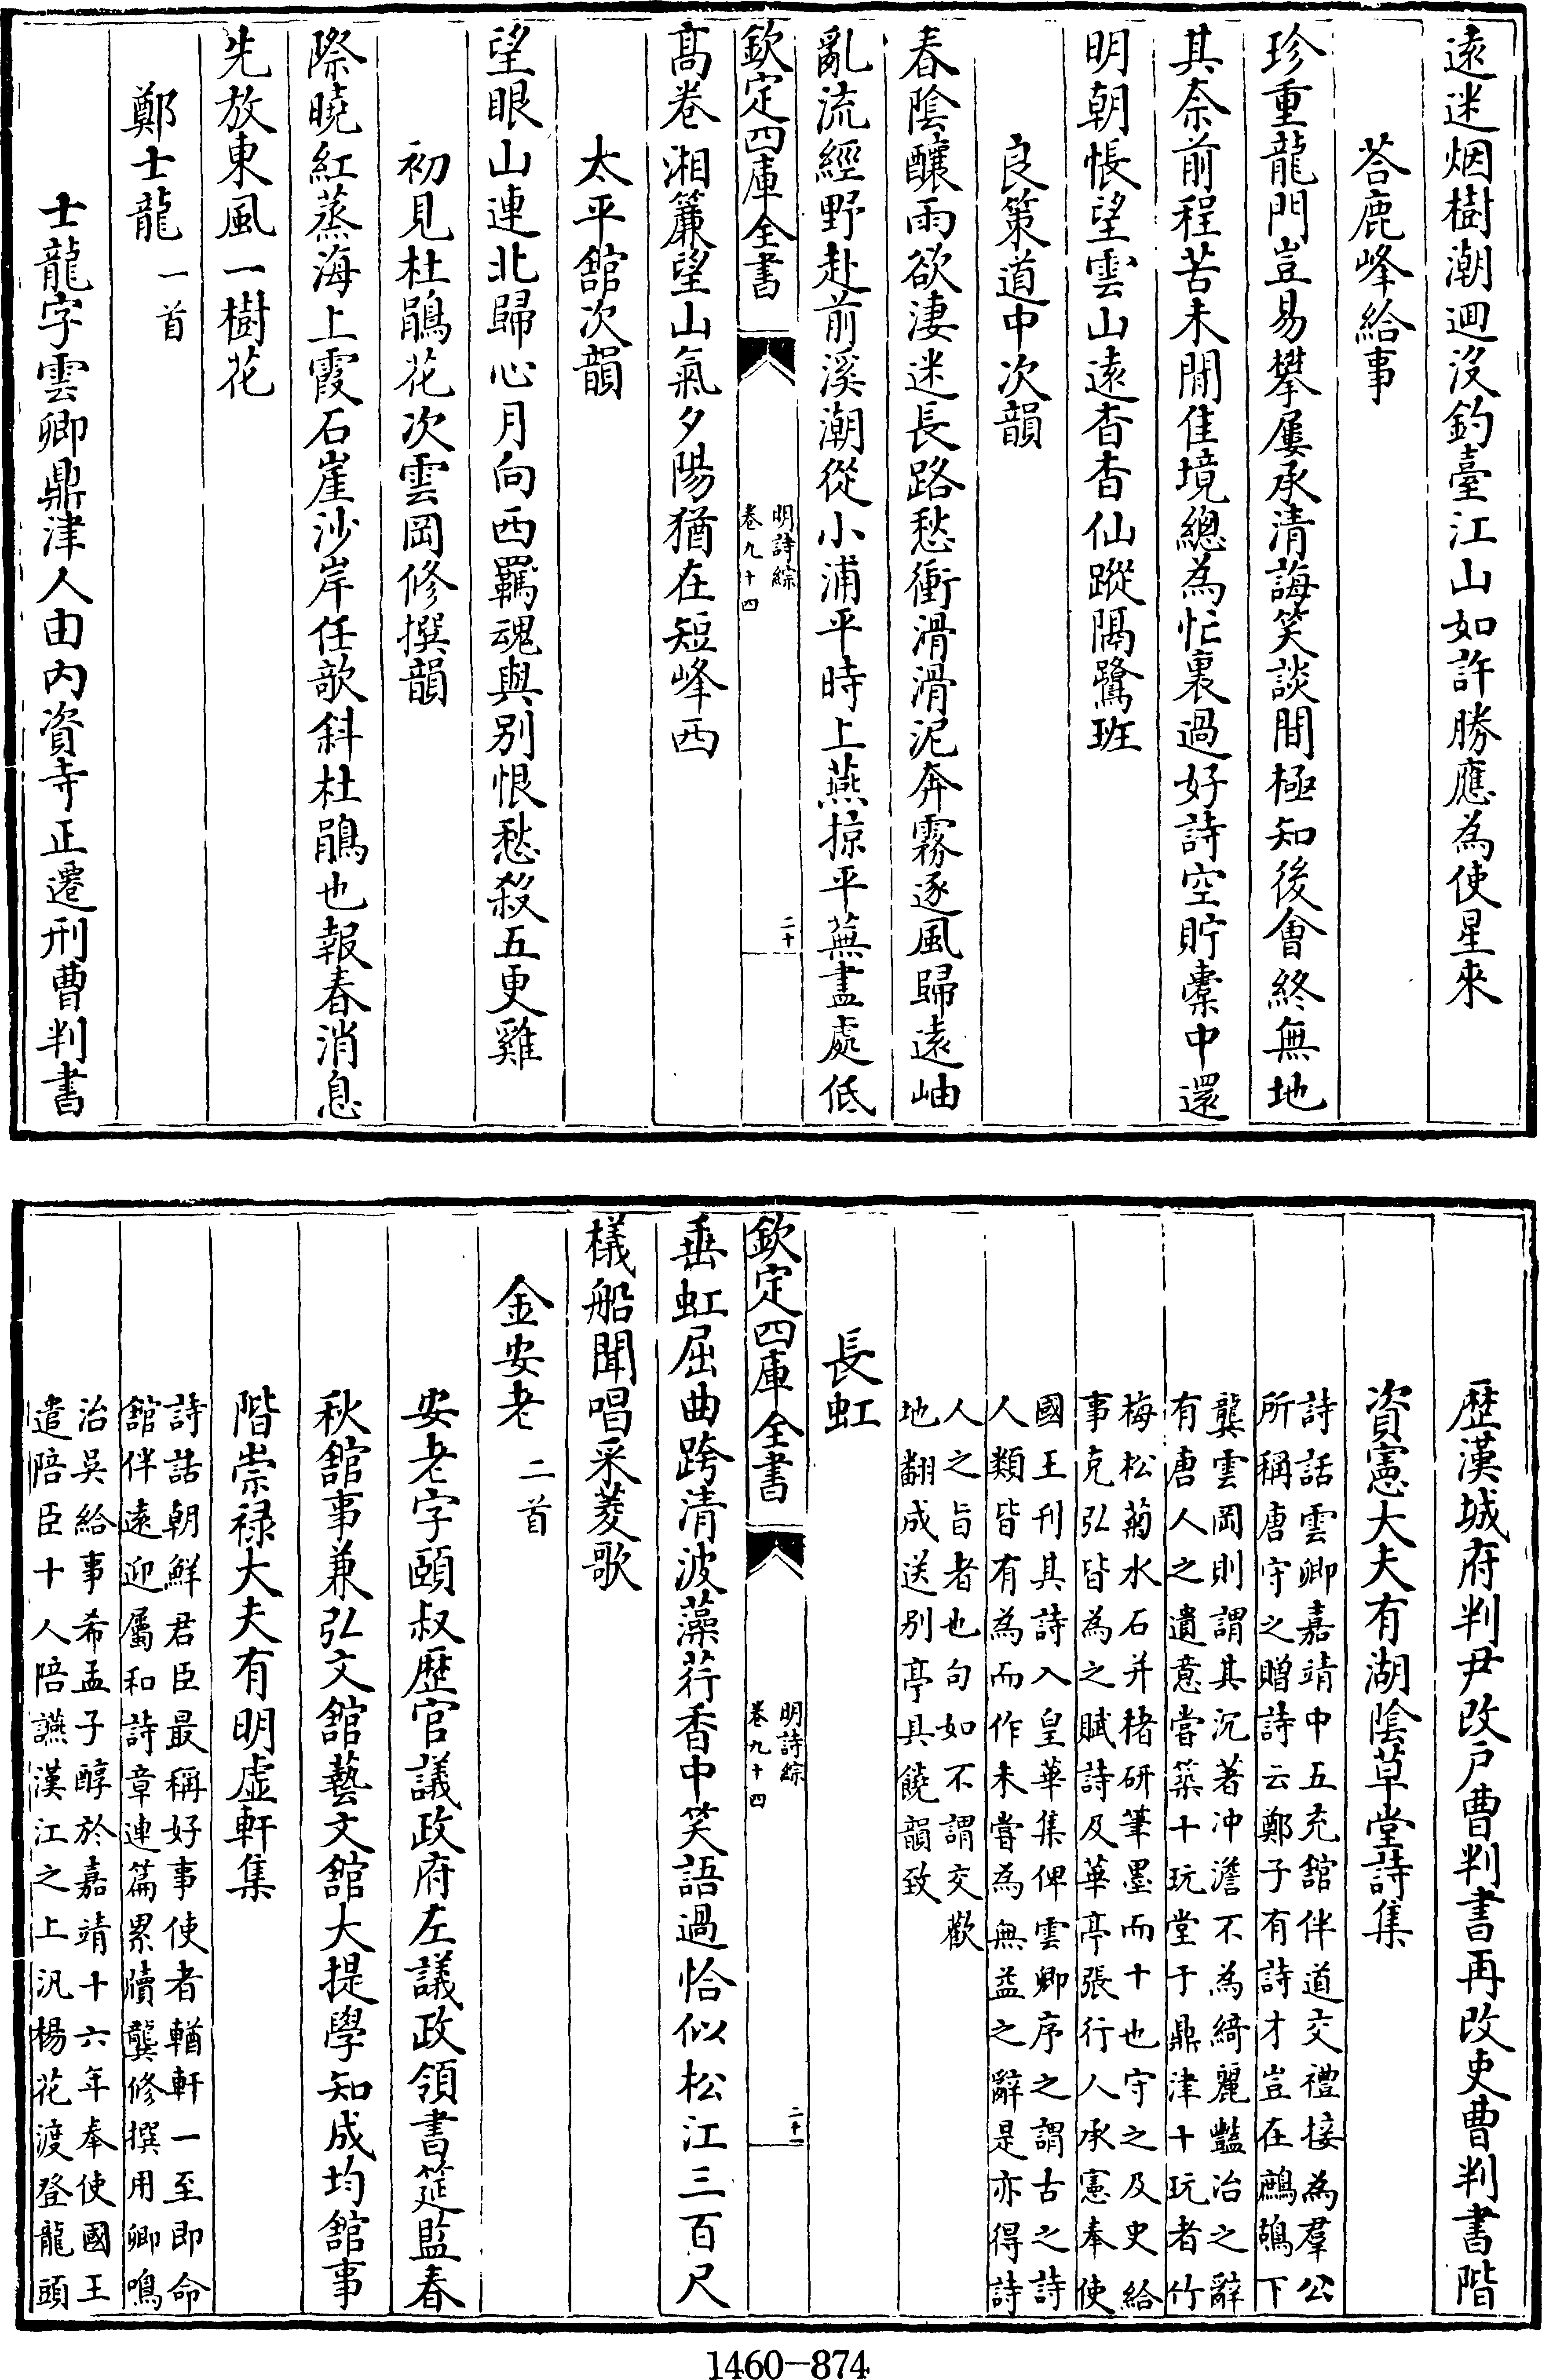 遠迷烟樹潮迴沒釣臺江山如許勝應為使星來
荅鹿峰給事
珍重龍門豈易攀屢承清誨笑談間極知後會終無地
其奈前程苦未閒佳境總為忙裏過好詩空貯橐中還
明朝悵望雲山遠杳杳仙蹤隔鷺班
良策道中次韻
春陰釀雨欲淒迷長路愁衝滑滑泥奔霧逐風歸遠岫
亂流經野赴前溪潮從小浦平時上燕掠平蕪盡處低
欽定四庫全書
明詩綜
卷九十四
二十
髙卷湘簾望山氣夕陽猶在短峰西
太平舘次韻
望眼山連北歸心月向西羈魂與别恨愁殺五更雞
初見杜鵑花次雲岡修撰韻
際曉紅蒸海上霞石崖沙岸任欹斜杜鵑也報春消息
先放東風一樹花
鄭士龍一首
士龍字雲卿鼎津人由内資寺正遷刑曹判書
歴漢城府判尹改戸曹判書再改吏曹判書階
資憲大夫有湖陰草堂詩集
詩話雲卿嘉靖中五充舘伴道交禮接為羣公
所稱唐守之贈詩云鄭子有詩才豈在鷓鴣下
龔雲岡則謂其沉著冲澹不為綺麗豔冶之辭
有唐人之遺意嘗築十玩堂于鼎津十玩者竹
梅松菊水石并楮研筆墨而十也守之及史給
事克弘皆為之賦詩及華亭張行人承憲奉使
國王刊其詩入皇華集俾雲卿序之謂古之詩
人類皆有為而作未嘗為無益之辭是亦得詩
人之旨者也句如不謂交歡
地翻成送别亭具饒韻致
長虹
欽定四庫全書
明詩綜
卷九十四
二十一
垂虹屈曲跨清波藻荇香中笑語過恰似松江三百尺
檥船聞唱采菱歌
金安老二首
安老字頤叔歴官議政府左議政領書筵監春
秋舘事兼弘文舘藝文舘大提學知成均舘事
階崇禄大夫有明虚軒集
詩話朝鮮君臣最稱好事使者輶軒一至即命
舘伴遠迎屬和詩章連篇累牘龔修撰用卿鳴
治吳給事希孟子醇於嘉靖十六年奉使國王
遣陪臣十人陪讌漢江之上汎楊花渡登龍頭
1460-874